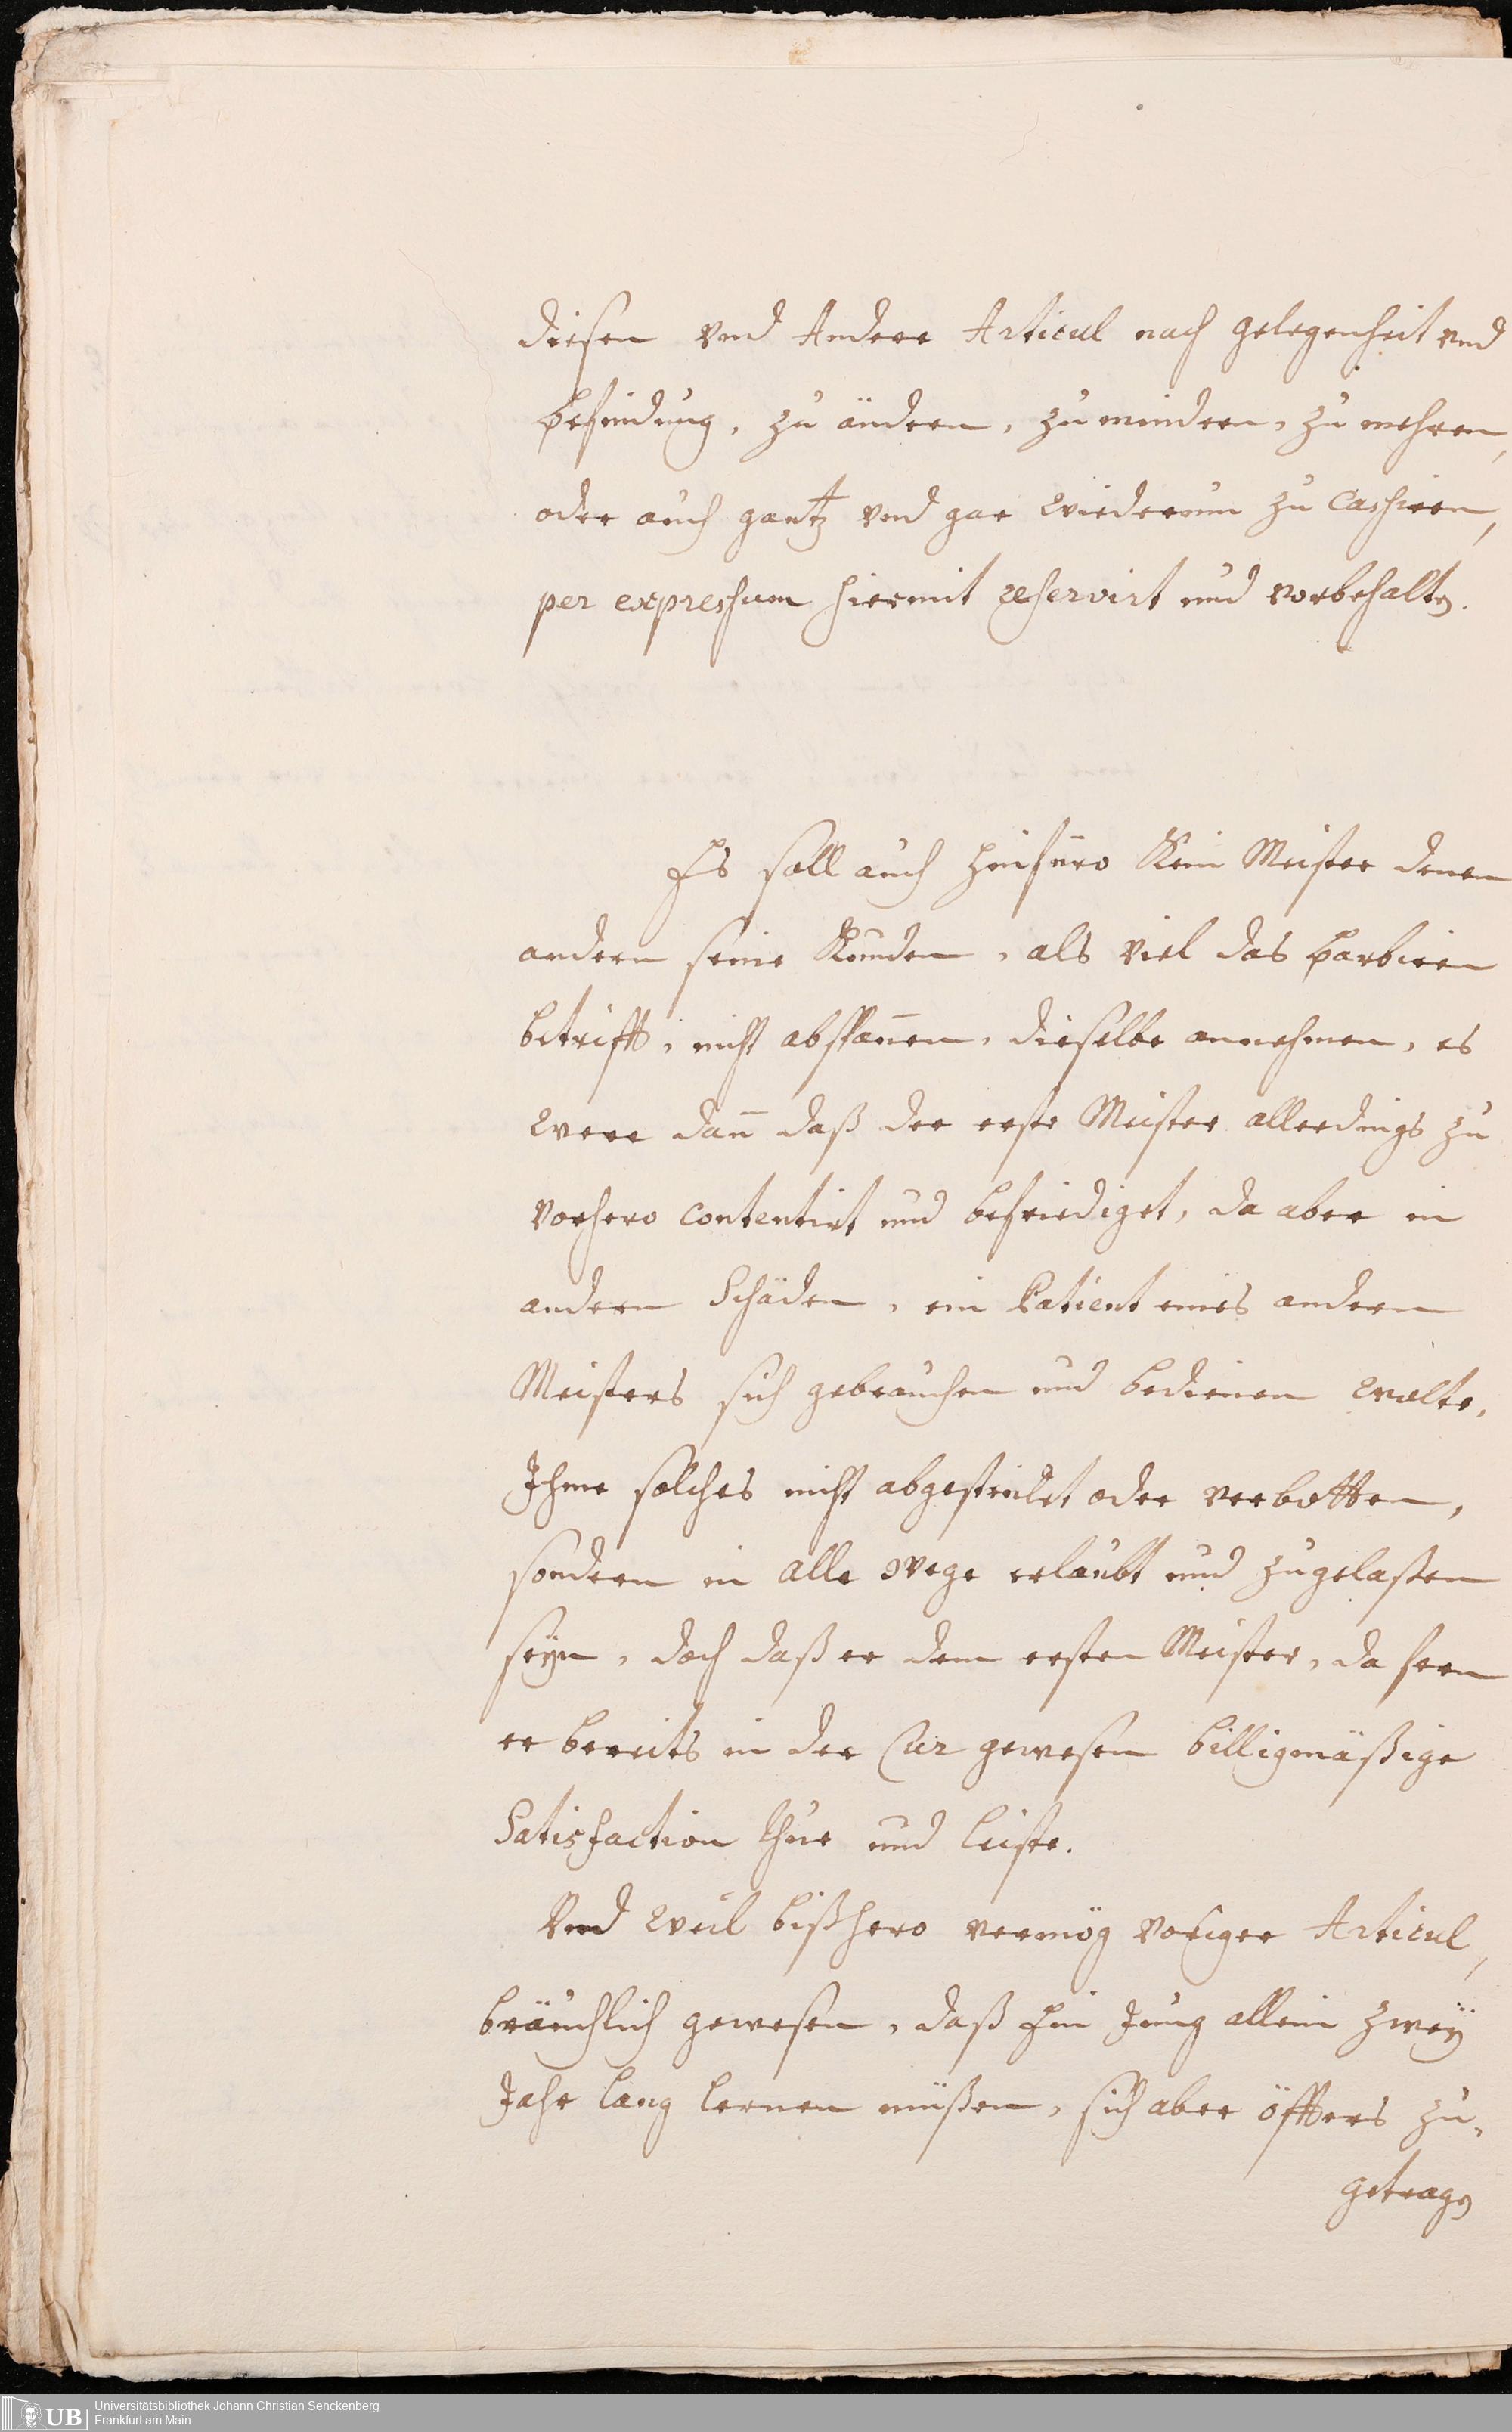 diesen vnd Andere Articul nach gelegenheit vnd
befindung, zu ändern, zu mindern, zu mehren,
oder auch gantz vnd gar wiederumb zu Cassiren,
per expressum hiermit reservirt und vorbehalten.
Es soll auch hinfüro Kein Meister denen
andern seine Kunden, als viel das barbieren
betrifft, nicht abspannen, dieselbe annehmen, es
were dann daß der erste Meister allerdings zu
vorhero contentirt und befriediget, da aber in
andern Schäden, ein Patient eines andern
Meisters sich gebrauchen und bedienen wolte,
Ihme solches nicht abgestricket oder verbotten,
sondern in alle wege erlaubt und zugelaßen
seyn, doch daß er dem ersten Meister, da fern
er bereits in der Cur gewesen billigmäßige
Satisfaction thue und leiste.
Vnd weil bißhero vermög voriger Articul,
bräuchlich gewesen, daß Ein Jung allein zwey
Jahr lang lernen müßen, sich aber öffters zu,
getragen
UB Universitätsbibliothek Johann Christian Senckenberg
Frankfurt am Main